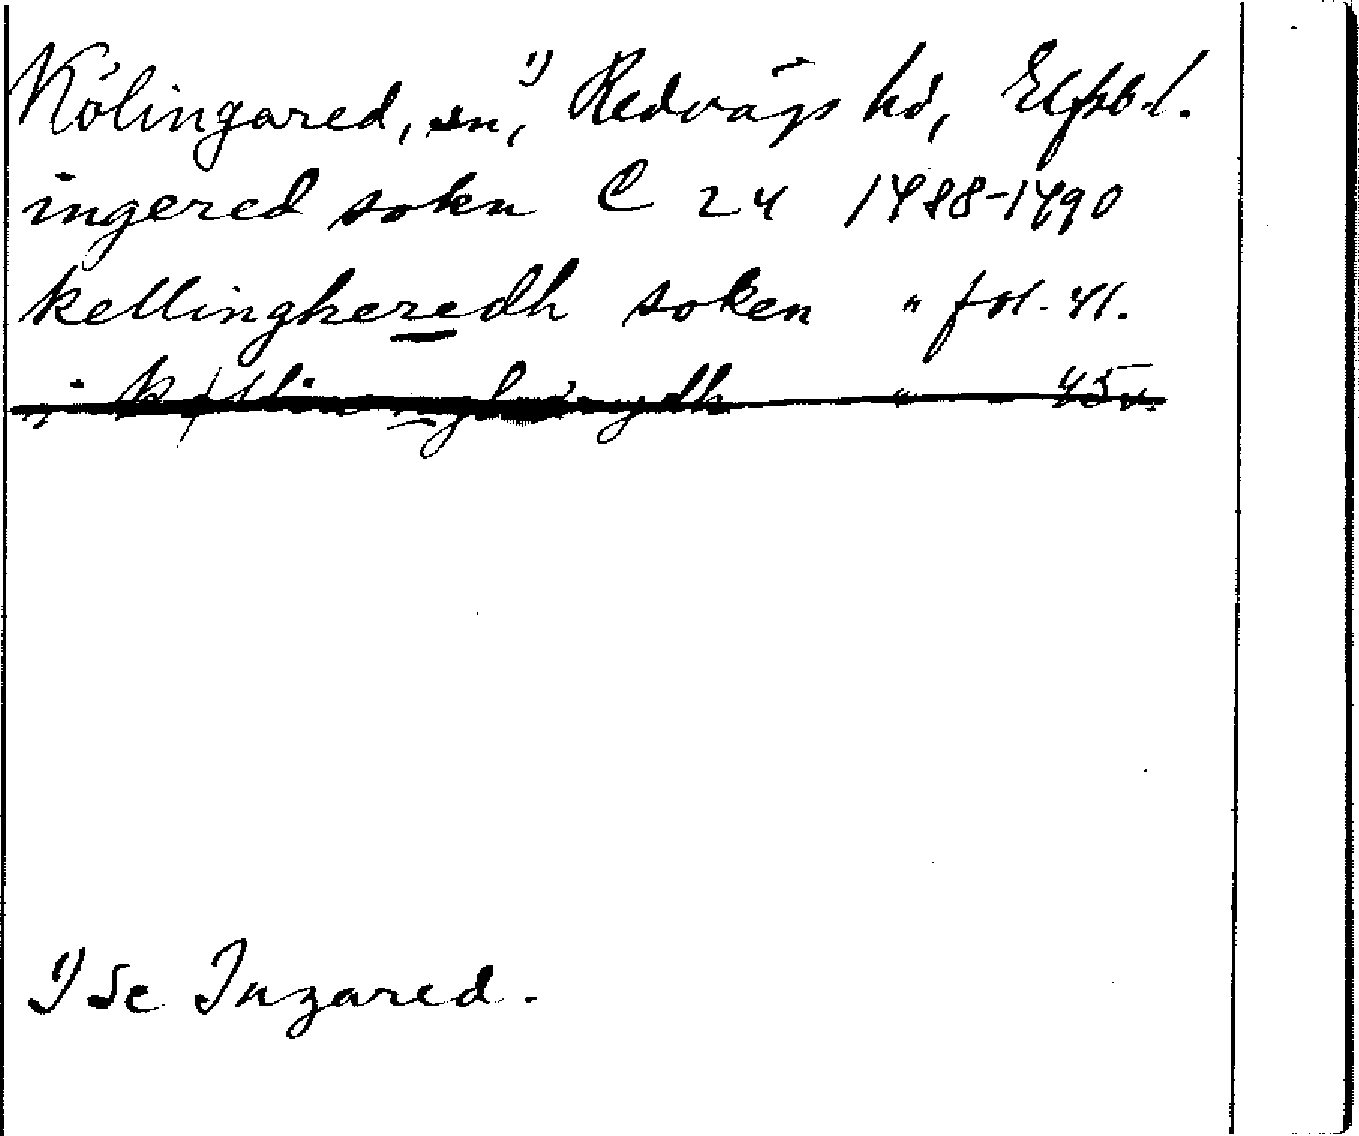 Kölingared, sn,¹⁾ Redvägs hd, Elfsb. l.
ingered sokn C 24 1488-1490
kellingheredh soken " fol. 41.
i " 45v.
¹⁾ Se Ingared.